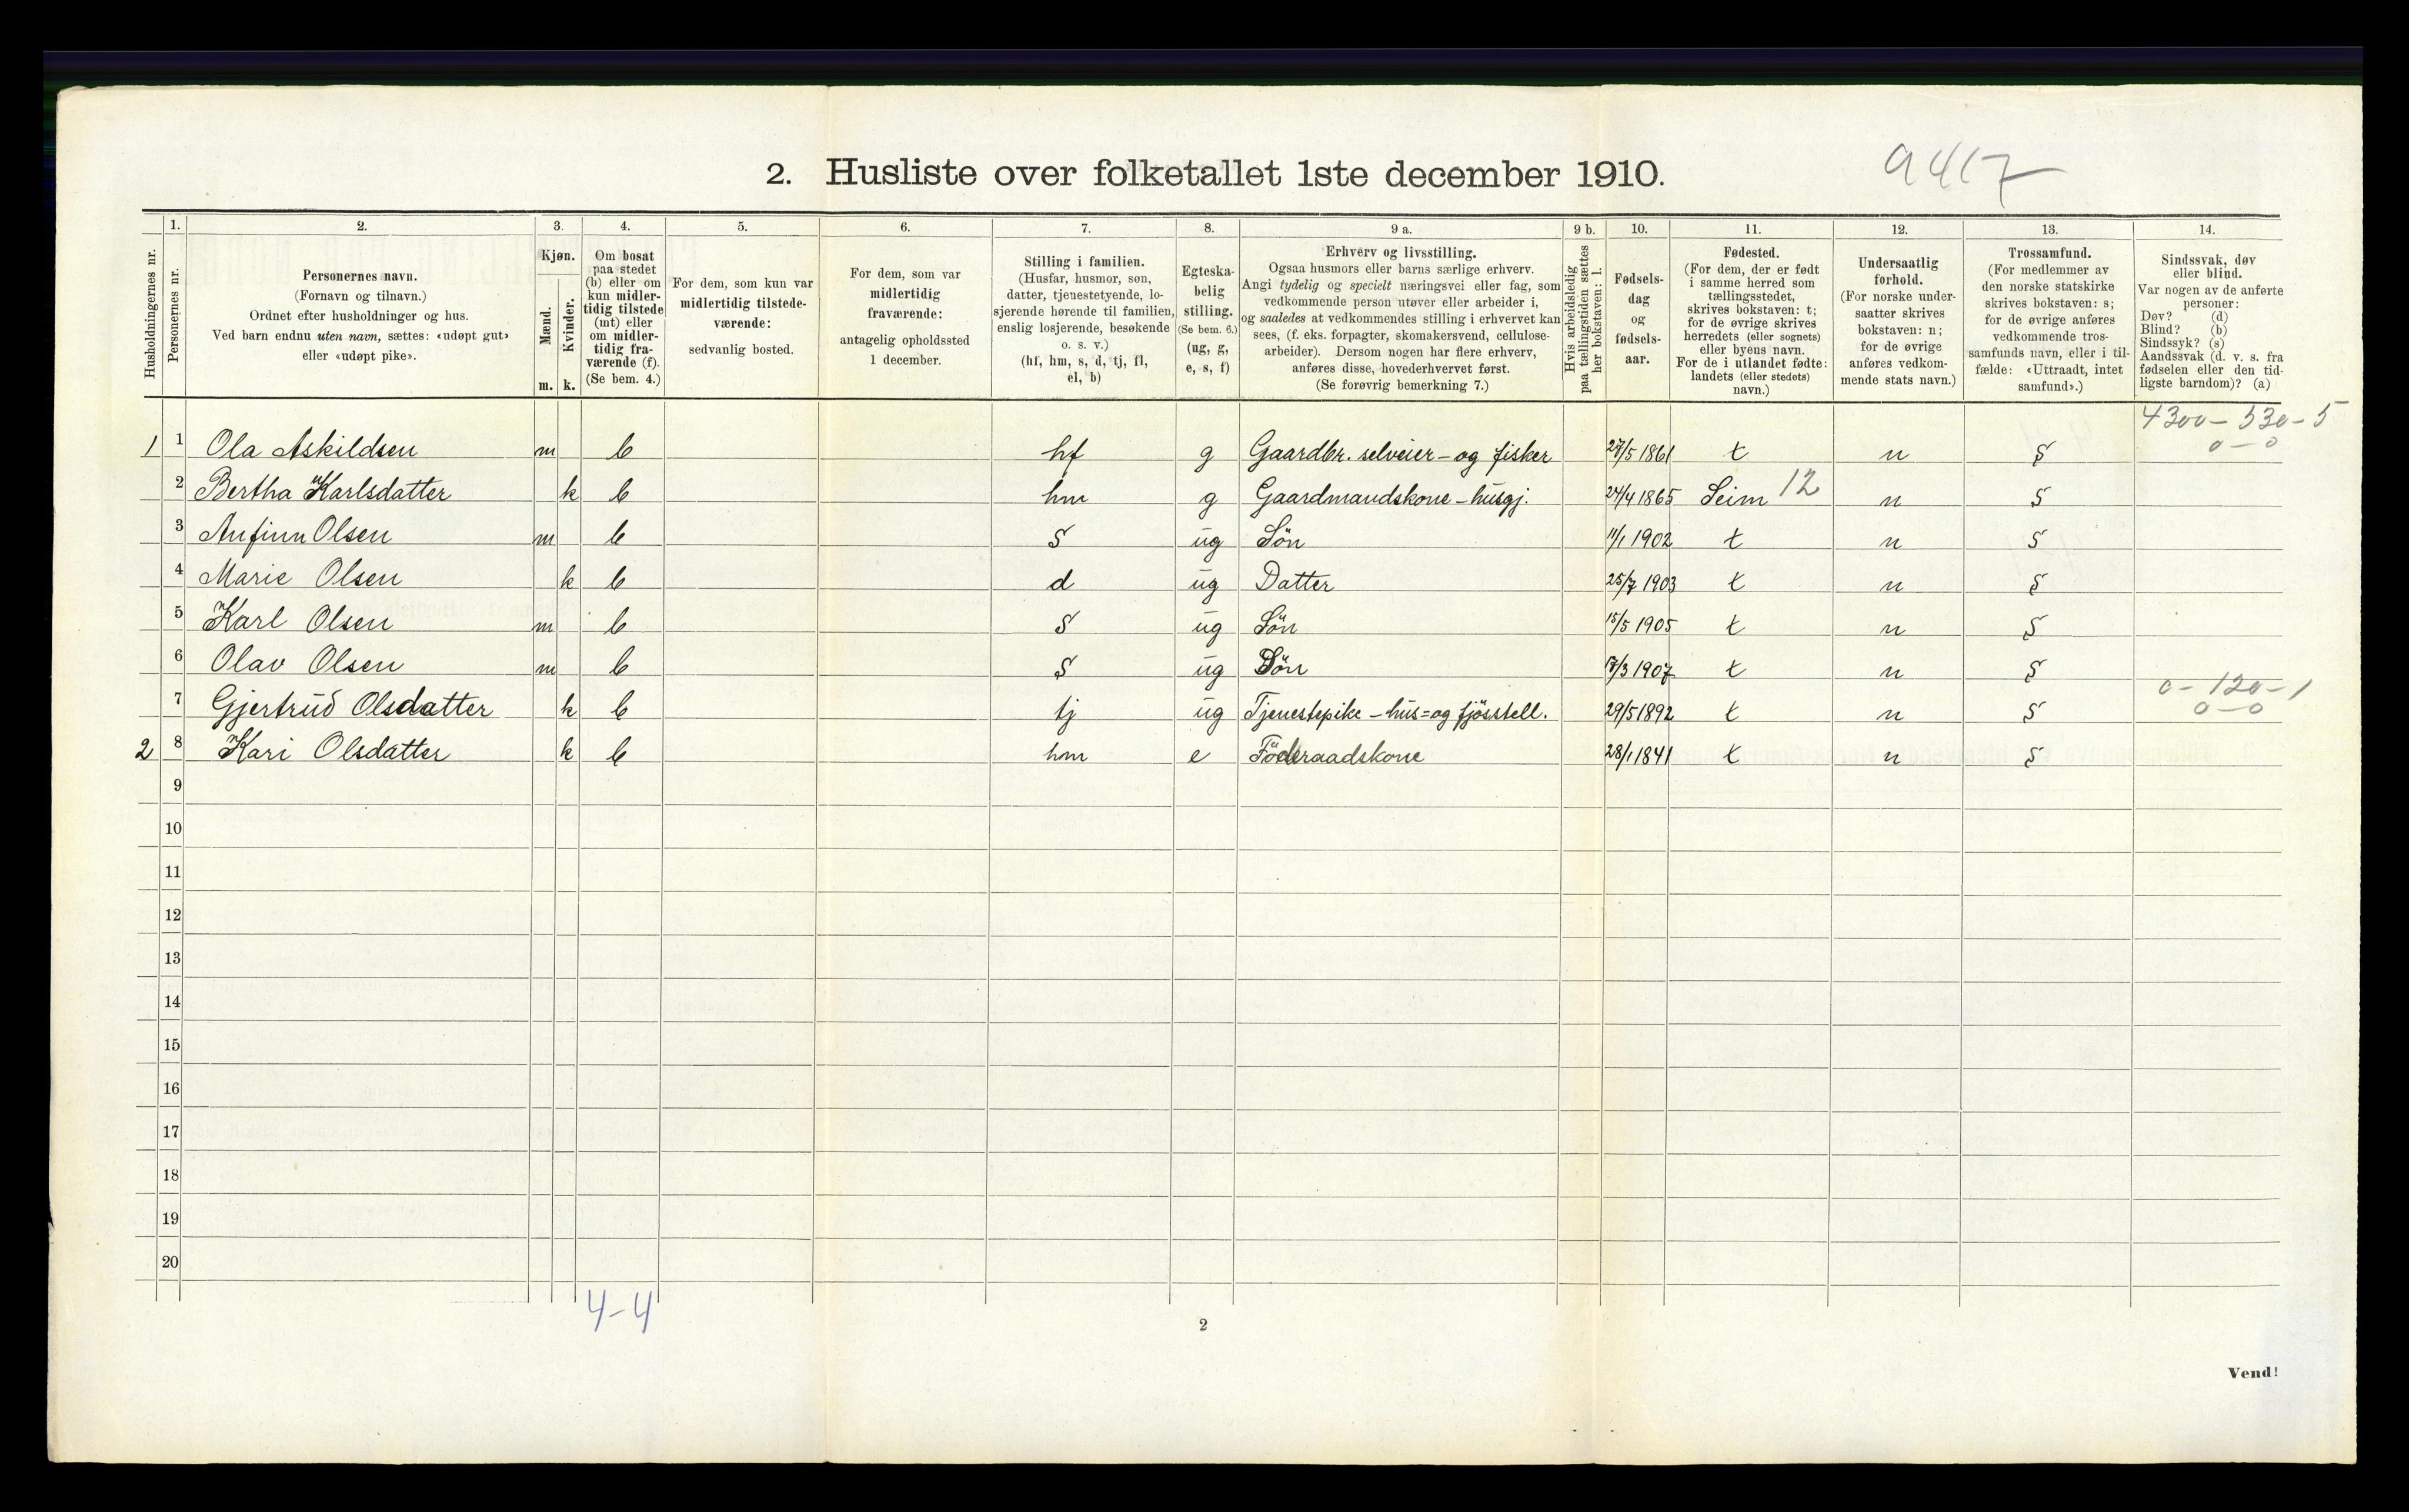 2. Husliste over folketallet 1ste december 1910.
9417
Husholdningernes nr.
1.
Personernes nr.
2.
Personernes navn.
(Fornavn og tilnavn.)
Ordnet efter husholdninger og hus.
Ved barn endnu uten navn, sættes: «udøpt gut»
eller «udøpt pike».
3.
Kjøn.
Mænd.
Kvinder.
m. k.
4.
Om bosat
paa stedet
(b) eller om
kun midler-
tidig tilstede
(mt) eller
om midler-
tidig fra-
værende (f).
(Se bem. 4.)
5.
For dem, som kun var
midlertidig tilstede-
værende:
sedvanlig bosted.
6.
For dem, som var
midlertidig
fraværende:
antagelig opholdssted
1 december.
7.
Stilling i familien.
(Husfar, husmor, søn,
datter, tjenestetyende, lo-
sjerende hørende til familien,
enslig losjerende, besøkende
o. s. v.)
(hf, hm, s, d, tj, fl,
el, b)
8.
Egteska-
belig
stilling.
(Se bem. 6.)
(ug, g,
e, s, f)
9 a.
Erhverv og livsstilling.
Ogsaa husmors eller barns særlige erhverv.
Angi tydelig og specielt næringsvei eller fag, som
vedkommende person utøver eller arbeider i,
og saaledes at vedkommendes stilling i erhvervet kan
sees, (f. eks. forpagter, skomakersvend, cellulose-
arbeider). Dersom nogen har flere erhverv,
anføres disse, hovederhvervet først.
(Se forøvrig bemerkning 7.)
9 b.
Hvis arbeidsledig
paa tællingstiden sættes
her bokstaven: l.
10.
Fødsels-
dag
og
fødsels-
aar.
11.
Fødested.
(For dem, der er født
i samme herred som
tællingsstedet,
skrives bokstaven: t;
for de øvrige skrives
herredets (eller sognets)
eller byens navn.
For de i utlandet fødte:
landets (eller stedets)
navn.)
12.
Undersaatlig
forhold.
(For norske under-
saatter skrives
bokstaven: n;
for de øvrige
anføres vedkom-
mende stats navn.)
13.
Trossamfund.
(For medlemmer av
den norske statskirke
skrives bokstaven: s;
for de øvrige anføres
vedkommende tros-
samfunds navn, eller i til-
fælde: «Uttraadt, intet
samfund».)
14.
Sindssvak, døv
eller blind.
Var nogen av de anførte
personer:
Døv? (d)
Blind? (b)
Sindssyk? (s)
Aandssvak (d. v. s. fra
fødselen eller den tid-
ligste barndom)? (a)
4300 - 530 - 5
0 - 0
1 1 Ola Askildsen m b hf g Gaardbr. selveier - og fisker 27/5 1861 t n s
2 Bertha Karlsdatter k b hm g Gaardmandskone - husgj. 24/4 1865 Seim 12 n s
3 Anfinn Olsen m b s ug Sön 11/1 1902 t n s
4 Marie Olsen k b d ug Datter 25/7 1903 t n s
5 Karl Olsen m b s ug Sön 15/5 1905 t n s
6 Olav Olsen m b s ug Sön 17/3 1907 t n s
0 - 120 - 1
0 - 0
7 Gjertrud Olsdatter k b tj ug Tjenestepike - hus= og fjösstell. 29/5 1892 t n s
2 8 Kari Olsdatter k b hm e Föderaadskone 28/1 1841 t n s
9
10
11
12
13
14
15
16
17
18
19
20
4-4
2
Vend!